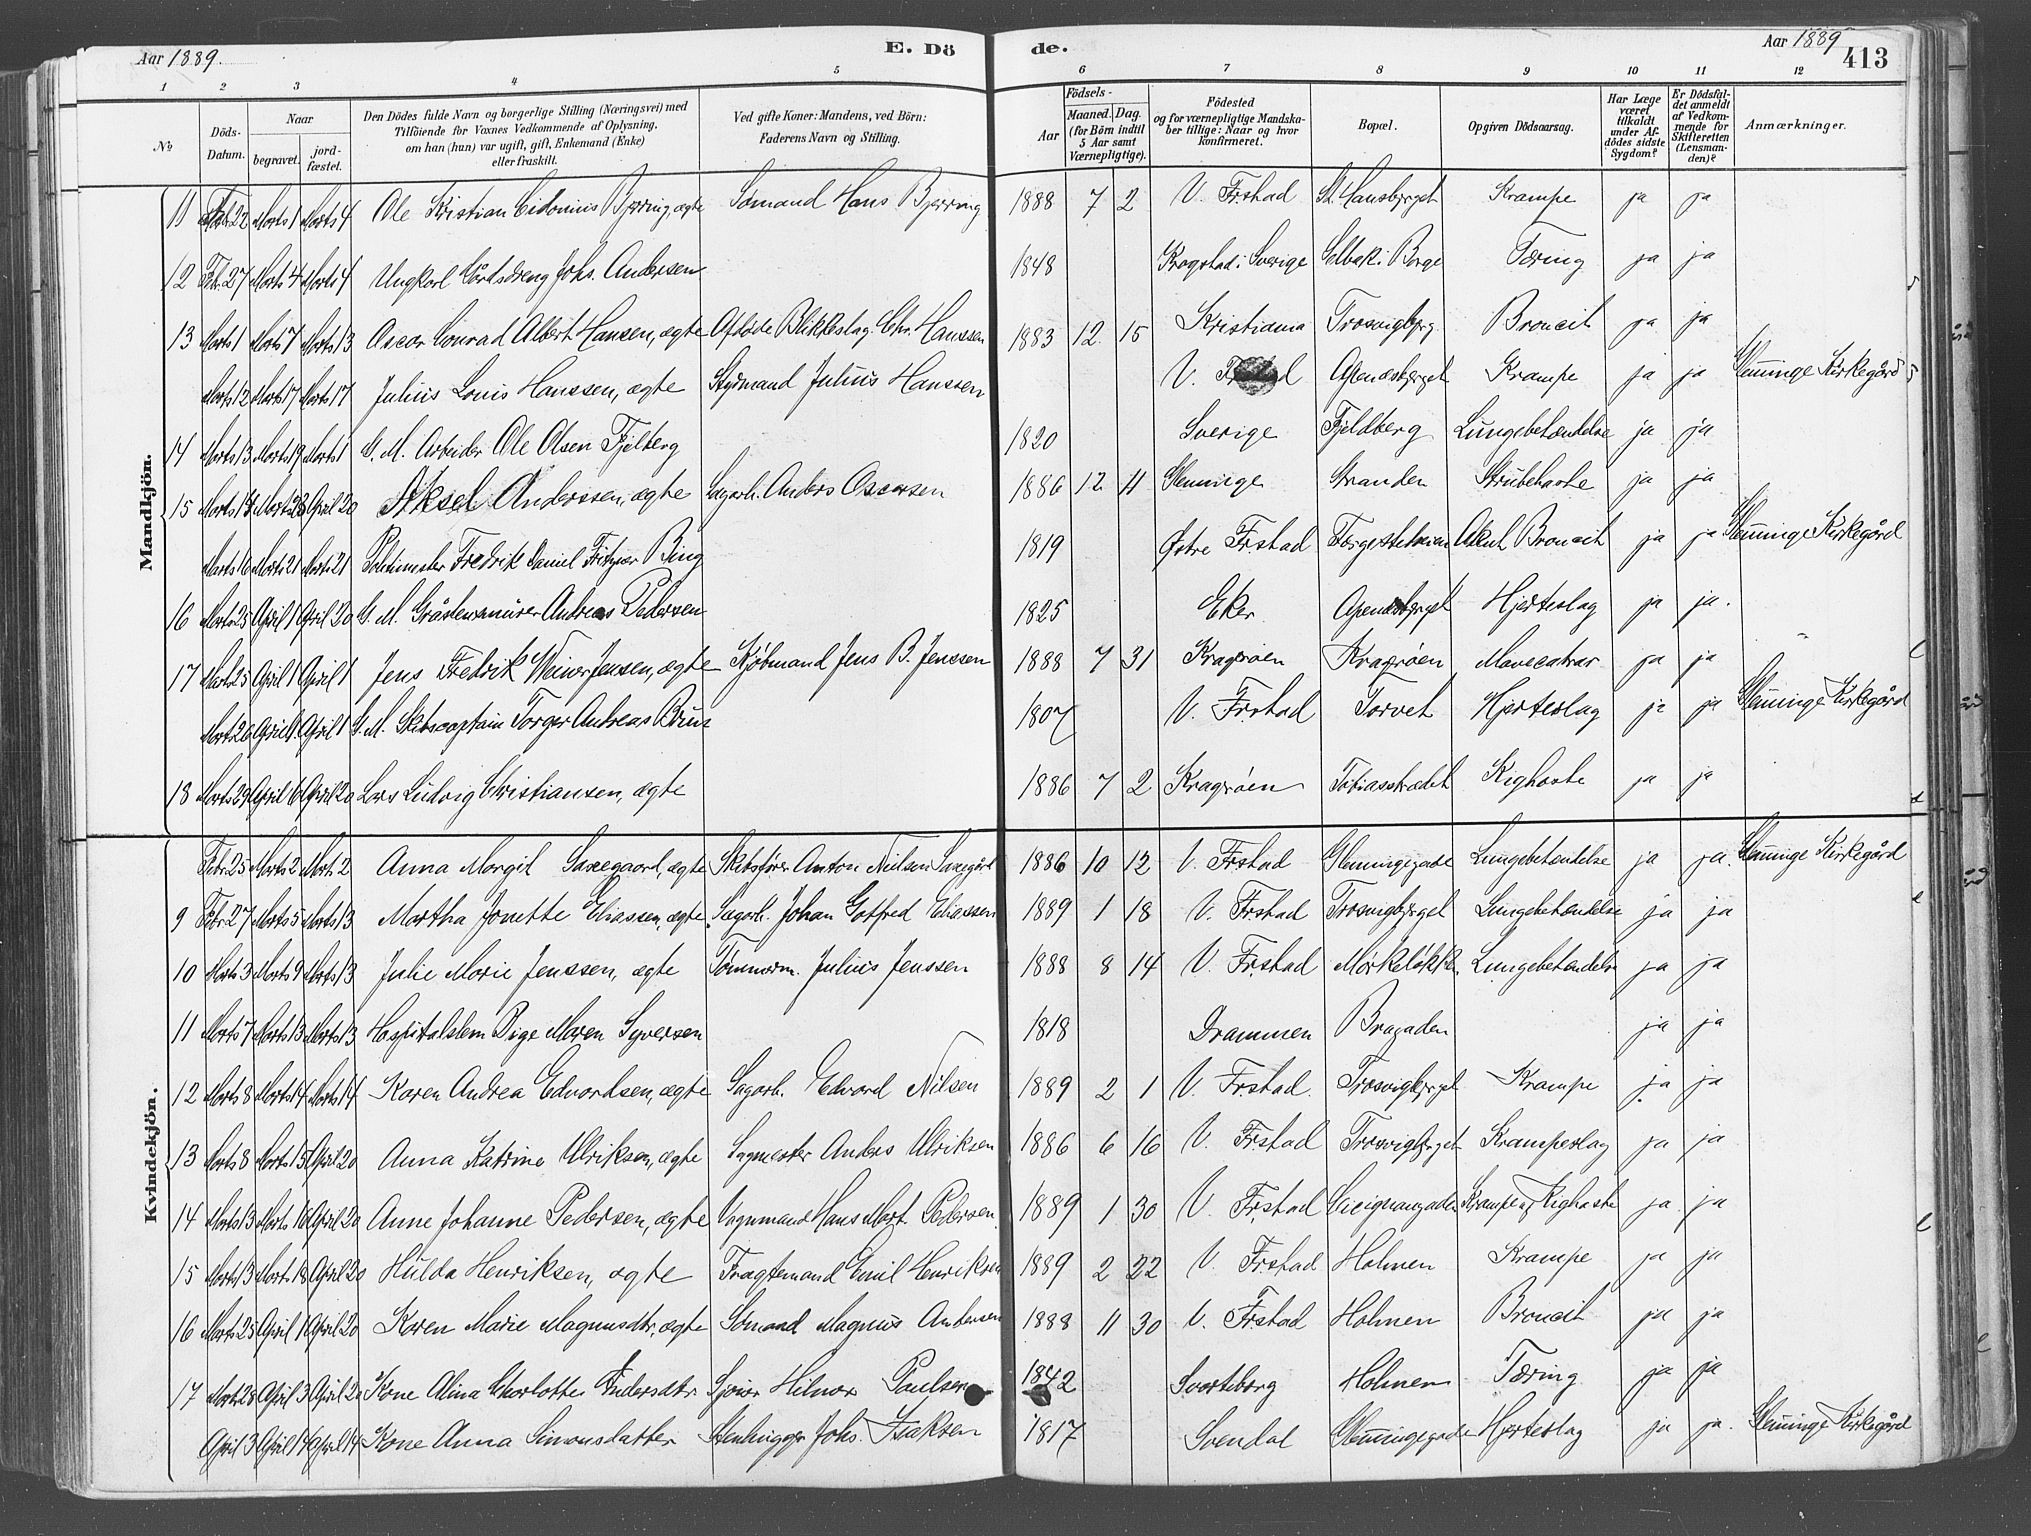 Aar 1889. E. Dö de. Aar 1889 413
1 2 3 4 5 6 7 8 9 10 11 12
No Döds-Datum. Naar begravet. jord-fæstet. Den Dödes fulde Navn og borgerlige Stilling (Næringsvei) med Tilföiende for Voxnes Vedkommende af Oplysning, om han (hun) var ugift, gift, Enkemand (Enke) eller fraskilt. Ved gifte Koner: Mandens, ved Börn: Faderens Navn og Stilling. Födsels- Aar Maaned. Dag. (for Börn indtil 5 Aar samt Værnepligtige). Födested og for værnepligtige Mandska-ber tillige: Naar og hvor konfirmeret. Bopæl. Opgiven Dödsaarsag. Har Læge været tilkaldt under Af-dödes sidste Sygdom? Er Dödsfal-det anmeldt af Vedkom-mende for Skifteretten (Lensman-den)? Anmærkninger.
Mandkjön.
11 Febr. 22 Marts 1 Marts 4 Ole Kristian Cidonius Bjerring, ægte Sømand Hans Bjerring 1888 7 2 V. Frstad St. Hansbjrget Krampe ja ja
12 Feb. 27 Marts 4 Marts 4 Ungkarl Gårdsdreng Johs. Andersen 1848 Krogstad i Sverige Selbak i Borge Tæring ja ja
13 Marts 1 Marts 7 Marts 13 Oscar Conrad Albert Hansen, ægte Afdøde Blikkeslag. Chr. Hanssen 1883 12 15 Kristiania Trosvigbjrg Broncit ja ja
Marts 12 Marts 17 Marts 17 Julius Louis Hanssen, ægte Styrmand Julius Hanssen V. Frstad Apenæsbjrget Krampe ja ja Glemminge Kirkegård
14 Marts 13 Marts 19 Marts 1 G. M. Arbeider Ole Olsen Fjelberg 1820 Sverige Fjeldberg Lungebetændelse ja ja
15 Marts 14 Marts 23 April 20 Aksel Anderssen, ægte Sagarb. Anders Oscarsen 1886 12 11 Glemminge Stranden Strubehoste ja ja
Marts 16 Marts 21 Marts 21 Politimester Fredrik Daniel Fritzner Bing 1819 Østre Frstad Færgestedveien Akut Broncit ja ja Glemminge Kirkegård
16 Marts 25 April 1 April 20 G. M. Gråstensmurer Andreas Pedersen 1825 Eker Apenæsbjrget Hjerteslag ja ja.
17 Marts 25 April 1 April 1 Jens Fredrik Weiner Jensen, ægte Kjøbmand Jens B. Jenssen 1888 7 31 Kragrøen Kragrøen Mavecatrar ja ja "
Marts 26 April 1 April 1 G. M. Skibscaptain Torger Andreas Bruu 1807 V. Frstad Torvet Hjerteslag ja ja Glemminge Kirkegård
18 Marts 29 April 6 April 20 Lars Ludvig Christiansen, ægte 1886 7 2 Kragrøen Tobiasstrædet Kighoste ja ja
Kvindekjön.
Febr. 25 Marts 2 Marts 2 Anna Margit Saxegaard, ægte Skibsfører Anton Nielsen Saxegård 1886 10 12 V. Frstad Glemmingegade Lungebetændelse ja ja. Glemminge Kirkegård
9 Febr. 27 Marts 5 Marts 13 Martha Jonette Eliassen, ægte Sagarb. Johan Gotfred Eliassen 1889 1 18 V. Frstad Trosvigbjrget Lungebetændelse ja ja
10 Marts 3 Marts 9 Marts 13 Julie Marie Jenssen, ægte Tømmerm. Julius Jenssen 1888 8 14 V. Frstad Mørkeløkken Lungebetændelse ja ja
11 Marts 7 Marts 13 Marts 13 Hospitalslem Pige Maren Syversen 1818 Drammen Bragaden ja ja
12 Marts 8 Marts 14 Marts 14 Karen Andrea Edvardsen, ægte Sagarb. Edvard Nilsen 1889 2 1 V. Frstad. Trosvigbjrget Krampe ja ja
13 Marts 8 Marts 15 April 20 Anna Katrine Ulriksen, ægte Sagmester Anders Ulriksen 1886 6 16 V. Frstad Trosvigbjrget Krampeslag ja ja
14 Marts 13 Marts 16 April 20 Anne Johanne Pedersen, ægte Vognmand Hans Mart. Pedersen 1889 1 30 V. Frstad Cicignongaden Krampe og Kighoste ja ja
15 Marts 13 Marts 18 April 20 Hulda Henriksen, ægte Fragtemand Emil Henriksen 1889 2 22 V. Frstad Holmen Krampe ja ja
16 Marts 25 April 1 April 20 Karen Marie Magnusdtr, ægte Sømand Magnus Andersen 1888 11 30 V. Frstad Holmen Broncit ja ja
17 Marts 28 April 3 April 20 Kone Alina Charlotte Andersdtr. Sjouer Hilmar Paulsen 1842 Svarteborg Holmen Tæring ja ja
April 3 April 14 April 14 Kone Anna Simonsdatter Stenhugger Johs. Isaksen 1817 Svendal Glemmingegade Hjerteslag ja ja. Glemminge Kirkegård